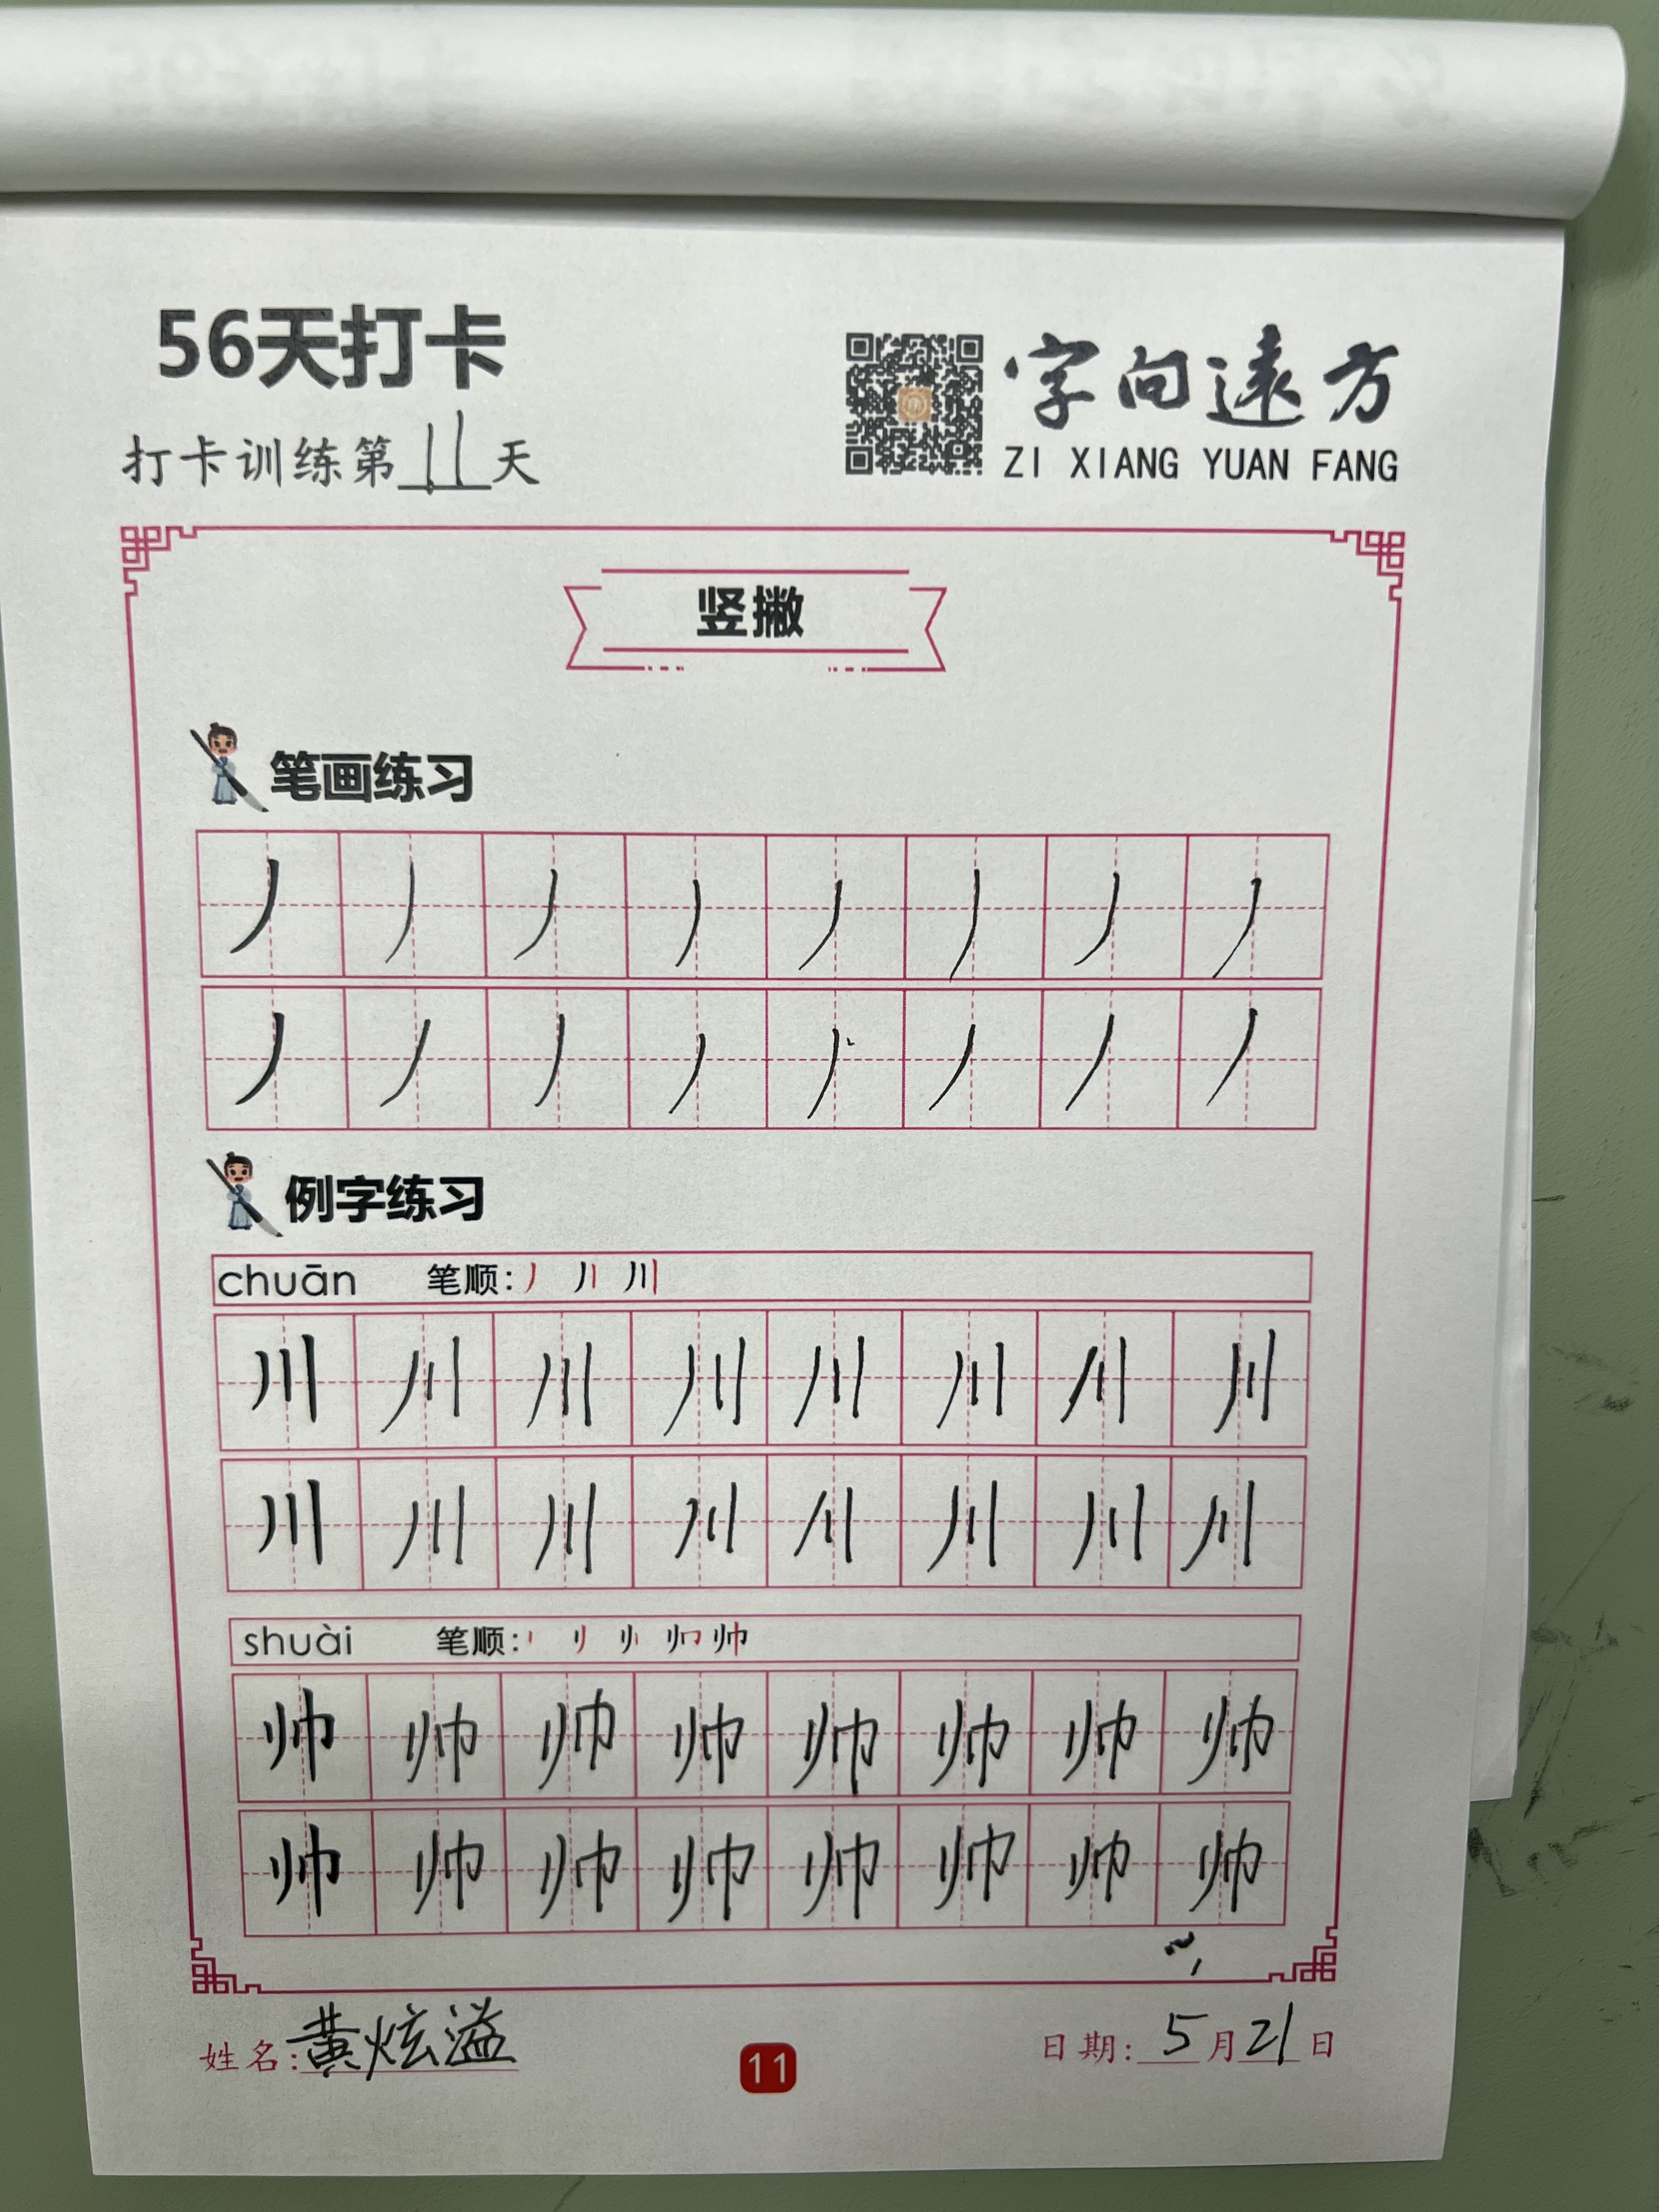 56天打卡
打卡训练第11天
字向遠方
ZI XIANG YUAN FANG
竖撇
笔画练习
丿 丿 丿 丿 丿 丿 丿 丿
丿 丿 丿 丿 丿 丿 丿 丿
例字练习
chuān 笔顺: 丿 川
川 川 川 川 川 川 川 川
川 川 川 川 川 川 川 川
shuài 笔顺: 帅
帅 帅 帅 帅 帅 帅 帅 帅
帅 帅 帅 帅 帅 帅 帅 帅
姓名: 黄炫溢
11
日期: 5月21日